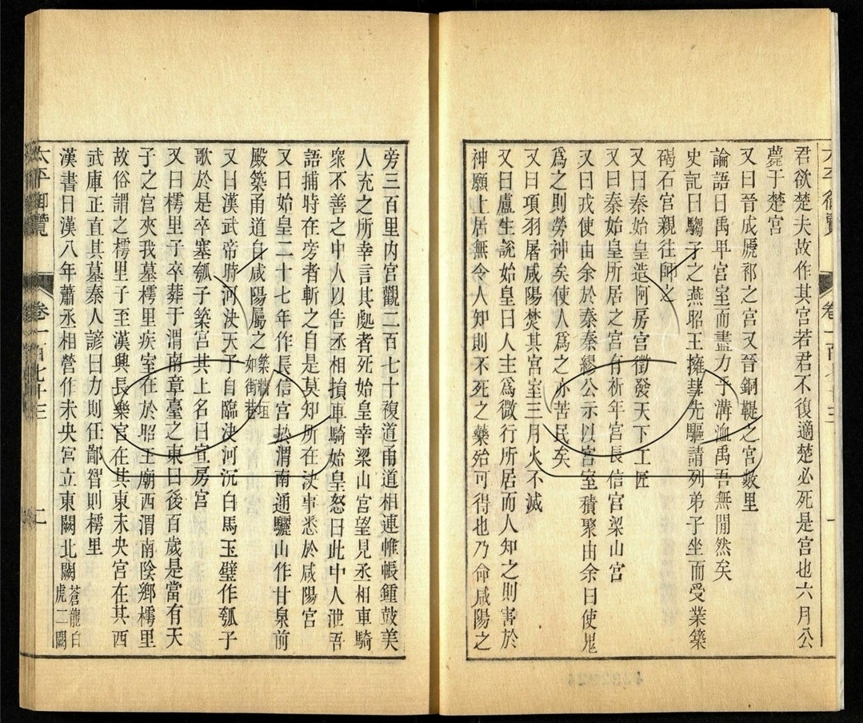 君欲楚夫故作其宮若君不復適楚必死是宮也六月公
薨于楚宮
又曰晉成虒祁之宮又晉銅鞮之宮數里
論語曰禹卑宮室而盡力乎溝洫禹吾無閒然矣
史記曰騶子之燕昭王擁彗先驅請列弟子坐而受業築
碣石宮親往師之
又曰秦始皇造阿房宮徵發天下工匠
又曰秦始皇所居之宮有祈年宮長信宮梁山宮
又曰戎使由余於秦秦繆公示以宮室積聚由余曰使鬼
為之則勞神矣使人為之亦苦民矣
又曰項羽屠咸陽焚其宮室三月火不滅
又曰盧生說始皇曰人主為微行所居而人知之則害於
神願上居無令人知則不死之藥殆可得也乃命咸陽之
太平御覽
卷一百七十三
二
旁三百里内宮觀二百七十複道甬道相連帷帳鍾鼓美
人充之所幸言其處者死始皇幸梁山宮望見丞相車騎
衆不善之中人以告丞相損車騎始皇怒曰此中人泄吾
語捕時在旁者斬之自是莫知所在決事悉於咸陽宮
又曰始皇二十七年作長信宮於渭南通驪山作甘泉前
殿築甬道自咸陽屬之築牆垣如街巷
又曰漢武帝時河決天子自臨決河沉白馬玉璧作瓠子
歌於是卒塞瓠子築宮其上名曰宣房宮
又曰樗里子卒葬于渭南章臺之東曰後百歲是當有天
子之宮夾我墓樗里疾室在於昭王廟西渭南陰鄉樗里
故俗謂之樗里子至漢興長樂宮在其東未央宮在其西
武庫正直其墓秦人諺曰力則任鄙智則樗里
漢書曰漢八年蕭丞相營作未央宮立東闕北闕蒼龍白虎二闕